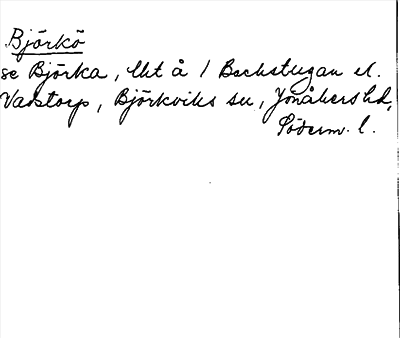 Björkö
se Björka, lht å 1 Backstugan el.
Vadstorp, Björkviks sn, Jönåkers hd,
Söderm. l.